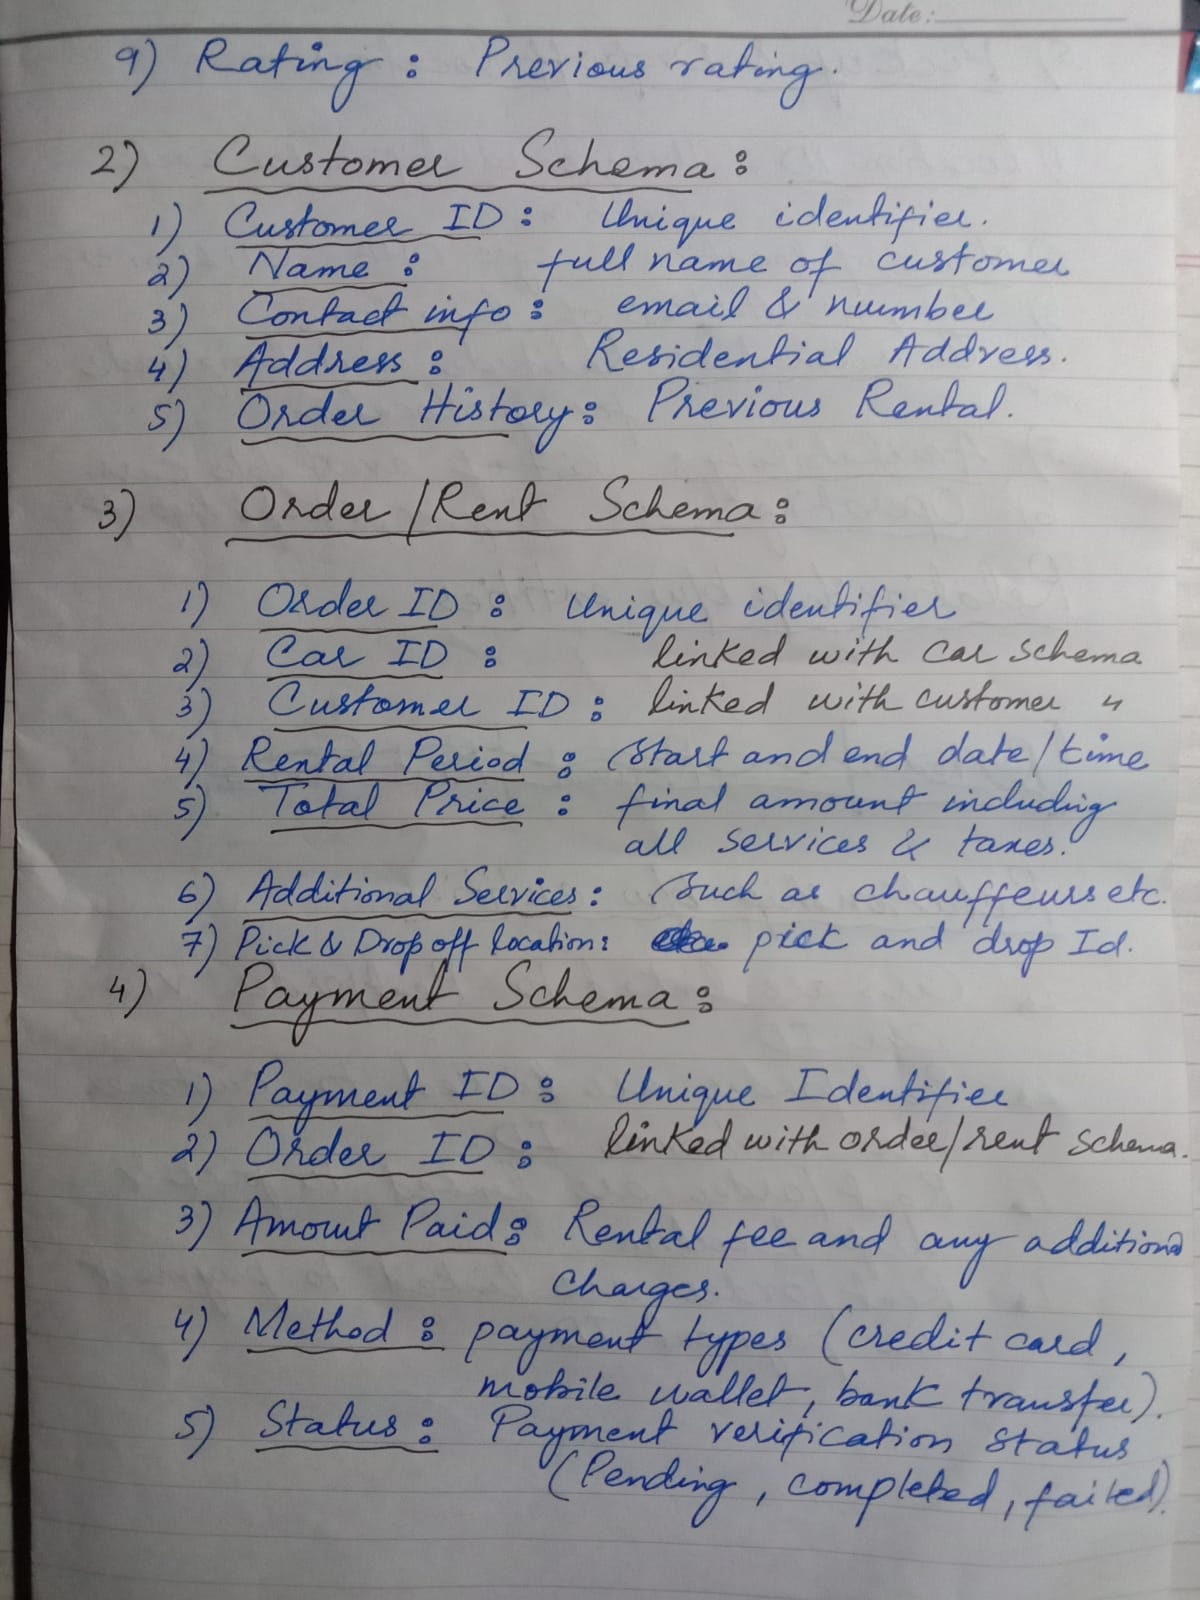 Date:
9) Rating : Previous rating.
2) Customer Schema :
1) Customer ID : Unique identifier.
2) Name : full name of customer
3) Contact info : email & nuumber
4) Address : Residential Address.
5) Order History : Previous Rental.
3) Order / Rent Schema :
1) Order ID : Unique identifier
2) Car ID : linked with car schema
3) Customer ID : linked with customer "
4) Rental Period : Start and end date/time
5) Total Price : final amount including
all services & taxes.
6) Additional Services : Such as chauffeurs etc.
7) Pick & Drop off location : pick and drop Id.
4) Payment Schema :
1) Payment ID : Unique Identifier
2) Order ID : linked with order/rent schema.
3) Amount Paid : Rental fee and any additional
charges.
4) Method : payment types (credit card,
mobile wallet, bank transfer).
5) Status : Payment verification status
(Pending, completed, failed).